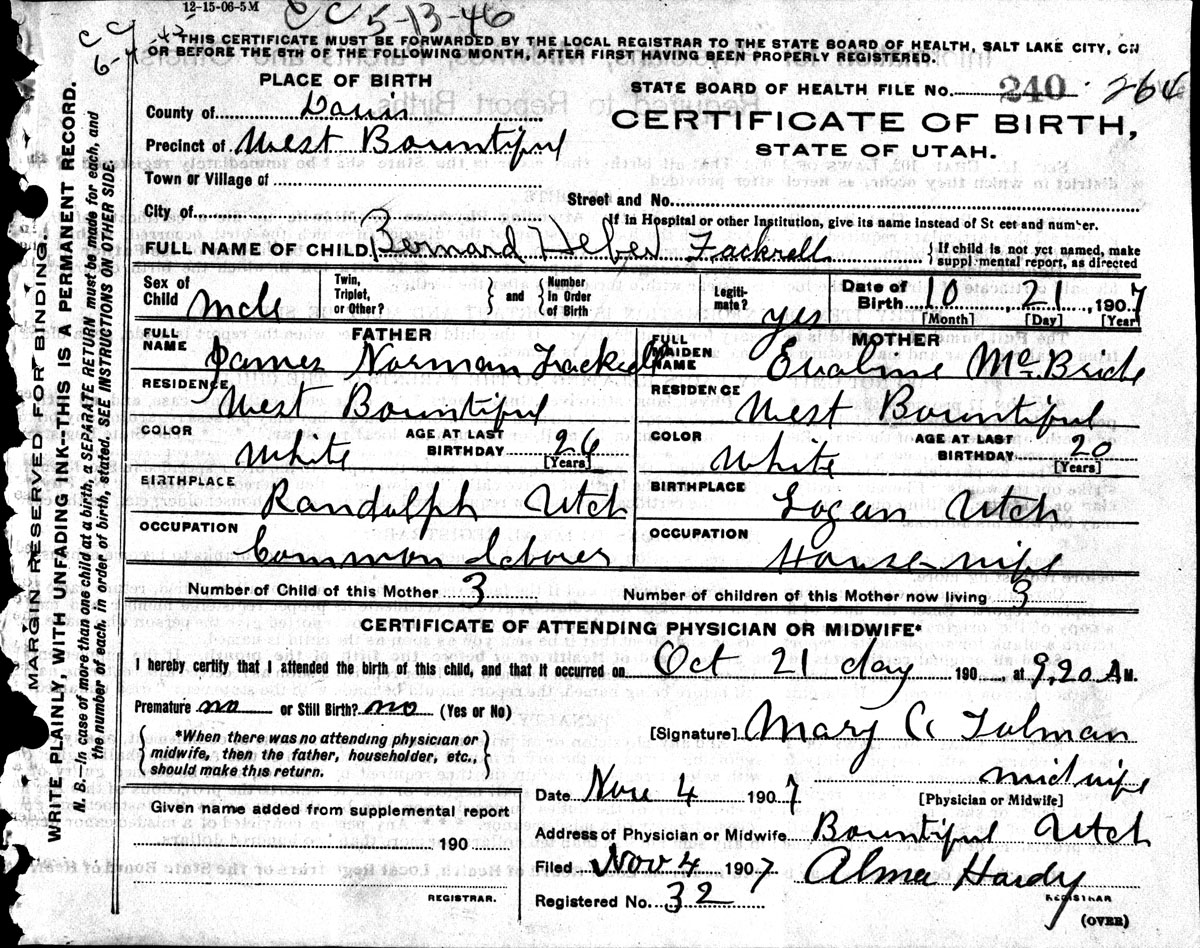 12-15-06-5M
CC 5-13-46
CC
THIS CERTIFICATE MUST BE FORWARDED BY THE LOCAL REGISTRAR TO THE STATE BOARD OF HEALTH, SALT LAKE CITY, ON
OR BEFORE THE 5TH OF THE FOLLOWING MONTH, AFTER FIRST HAVING BEEN PROPERLY REGISTERED.
PLACE OF BIRTH
STATE BOARD OF HEALTH FILE NO. 240 264
County of Davis
CERTIFICATE OF BIRTH,
Precinct of West Bountiful
STATE OF UTAH.
Town or Village of
Street and No.
City of
If in Hospital or other Institution, give its name instead of St eet and number.
FULL NAME OF CHILD Bernard Heber Fackrell { If child is not yet named, make
suppl mental report, as directed
Sex of Child male Twin, Triplet, or Other? } and { Number in Order of Birth Legiti- mate? yes Date of Birth 10 21 1907
[Month] [Day] [Year]
FATHER MOTHER
FULL NAME James Norman Fackrell FULL MAIDEN NAME Evaline McBride
RESIDENCE West Bountiful RESIDENCE West Bountiful
COLOR White AGE AT LAST BIRTHDAY 26 [Years] COLOR White AGE AT LAST BIRTHDAY 20 [Years]
BIRTHPLACE Randolph Utah BIRTHPLACE Logan Utah
OCCUPATION Common Laborer OCCUPATION House-wife
Number of Child of this Mother 3 Number of children of this Mother now living 3
CERTIFICATE OF ATTENDING PHYSICIAN OR MIDWIFE*
I hereby certify that I attended the birth of this child, and that it occurred on Oct 21 day 190 , at 9,20 A M.
Premature no or Still Birth? no (Yes or No)
[Signature] Mary C. Tolman
*When there was no attending physician or
midwife, then the father, householder, etc.,
should make this return.
midwife
[Physician or Midwife]
Date Nov 4 1907
Given name added from supplemental report
190
Address of Physician or Midwife Bountiful Utah
Filed Nov 4 1907 Alma Hardy
REGISTRAR. REGISTRAR
Registered No. 32
(OVER)
MARGIN RESERVED FOR BINDING.
WRITE PLAINLY, WITH UNFADING INK--THIS IS A PERMANENT RECORD.
N. B.--In case of more than one child at a birth, a SEPARATE RETURN must be made for each, and
the number of each, in order of birth, stated. SEE INSTRUCTIONS ON OTHER SIDE.